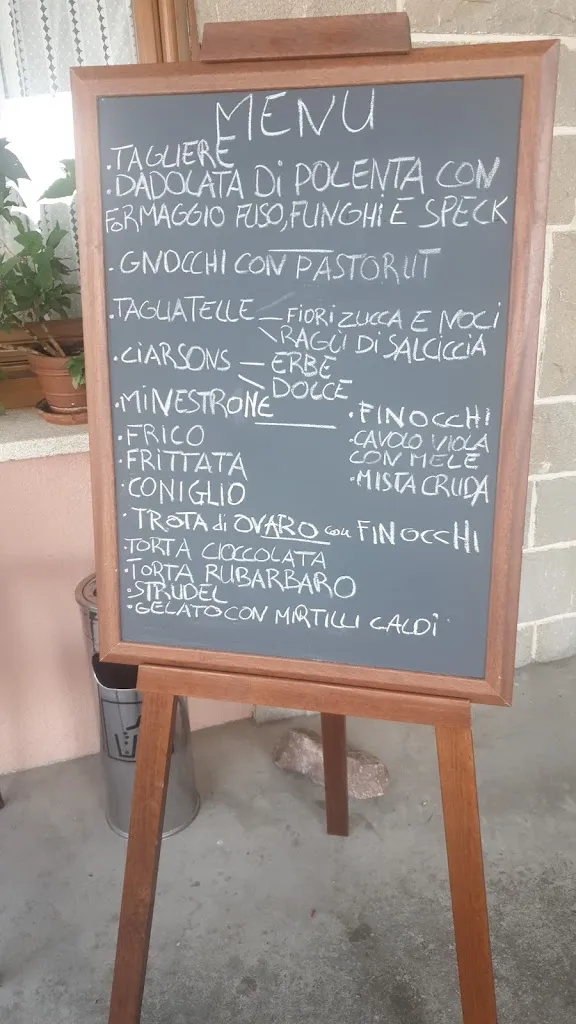 MENU
·TAGLIERE
·DADOLATA Di POLENTA CON
FORMAGGIO FUSO, FUNGHi E SPECK
·GNOCCHI CON PASTORUT
·TAGLIATELLE — FIORI ZUCCA E NOCI
RAGÙ DI SALCICCIA
·CIARSONS — ERBE
DOLCE
·MINESTRONE
·FRICO
·FRITTATA
·CONIGLIO
·FINOCCHI
·CAVOLO VIOLA
CON MELE
·MISTA CRUDA
·TROTA di OVARO con FINOCCHI
·TORTA CIOCCOLATA
·TORTA RUBARBARO
·STRUDEL
·GELATO CON MIRTILLI CALDi